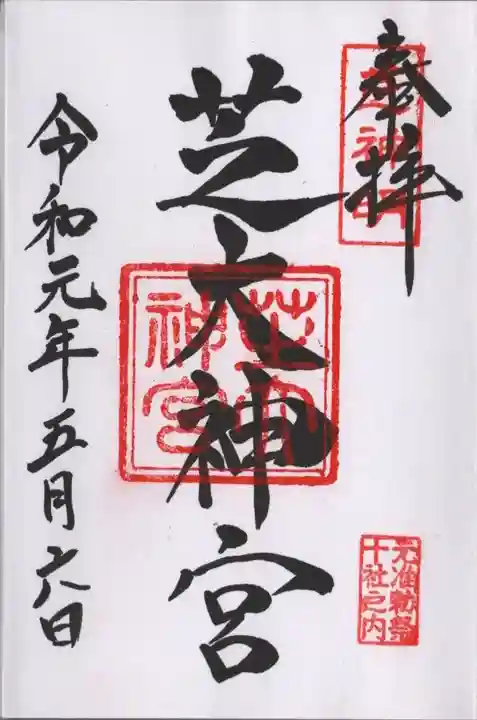 奉拝
芝大神宮
芝大神宮
令和元年五月六日
元准勅祭
十社之内